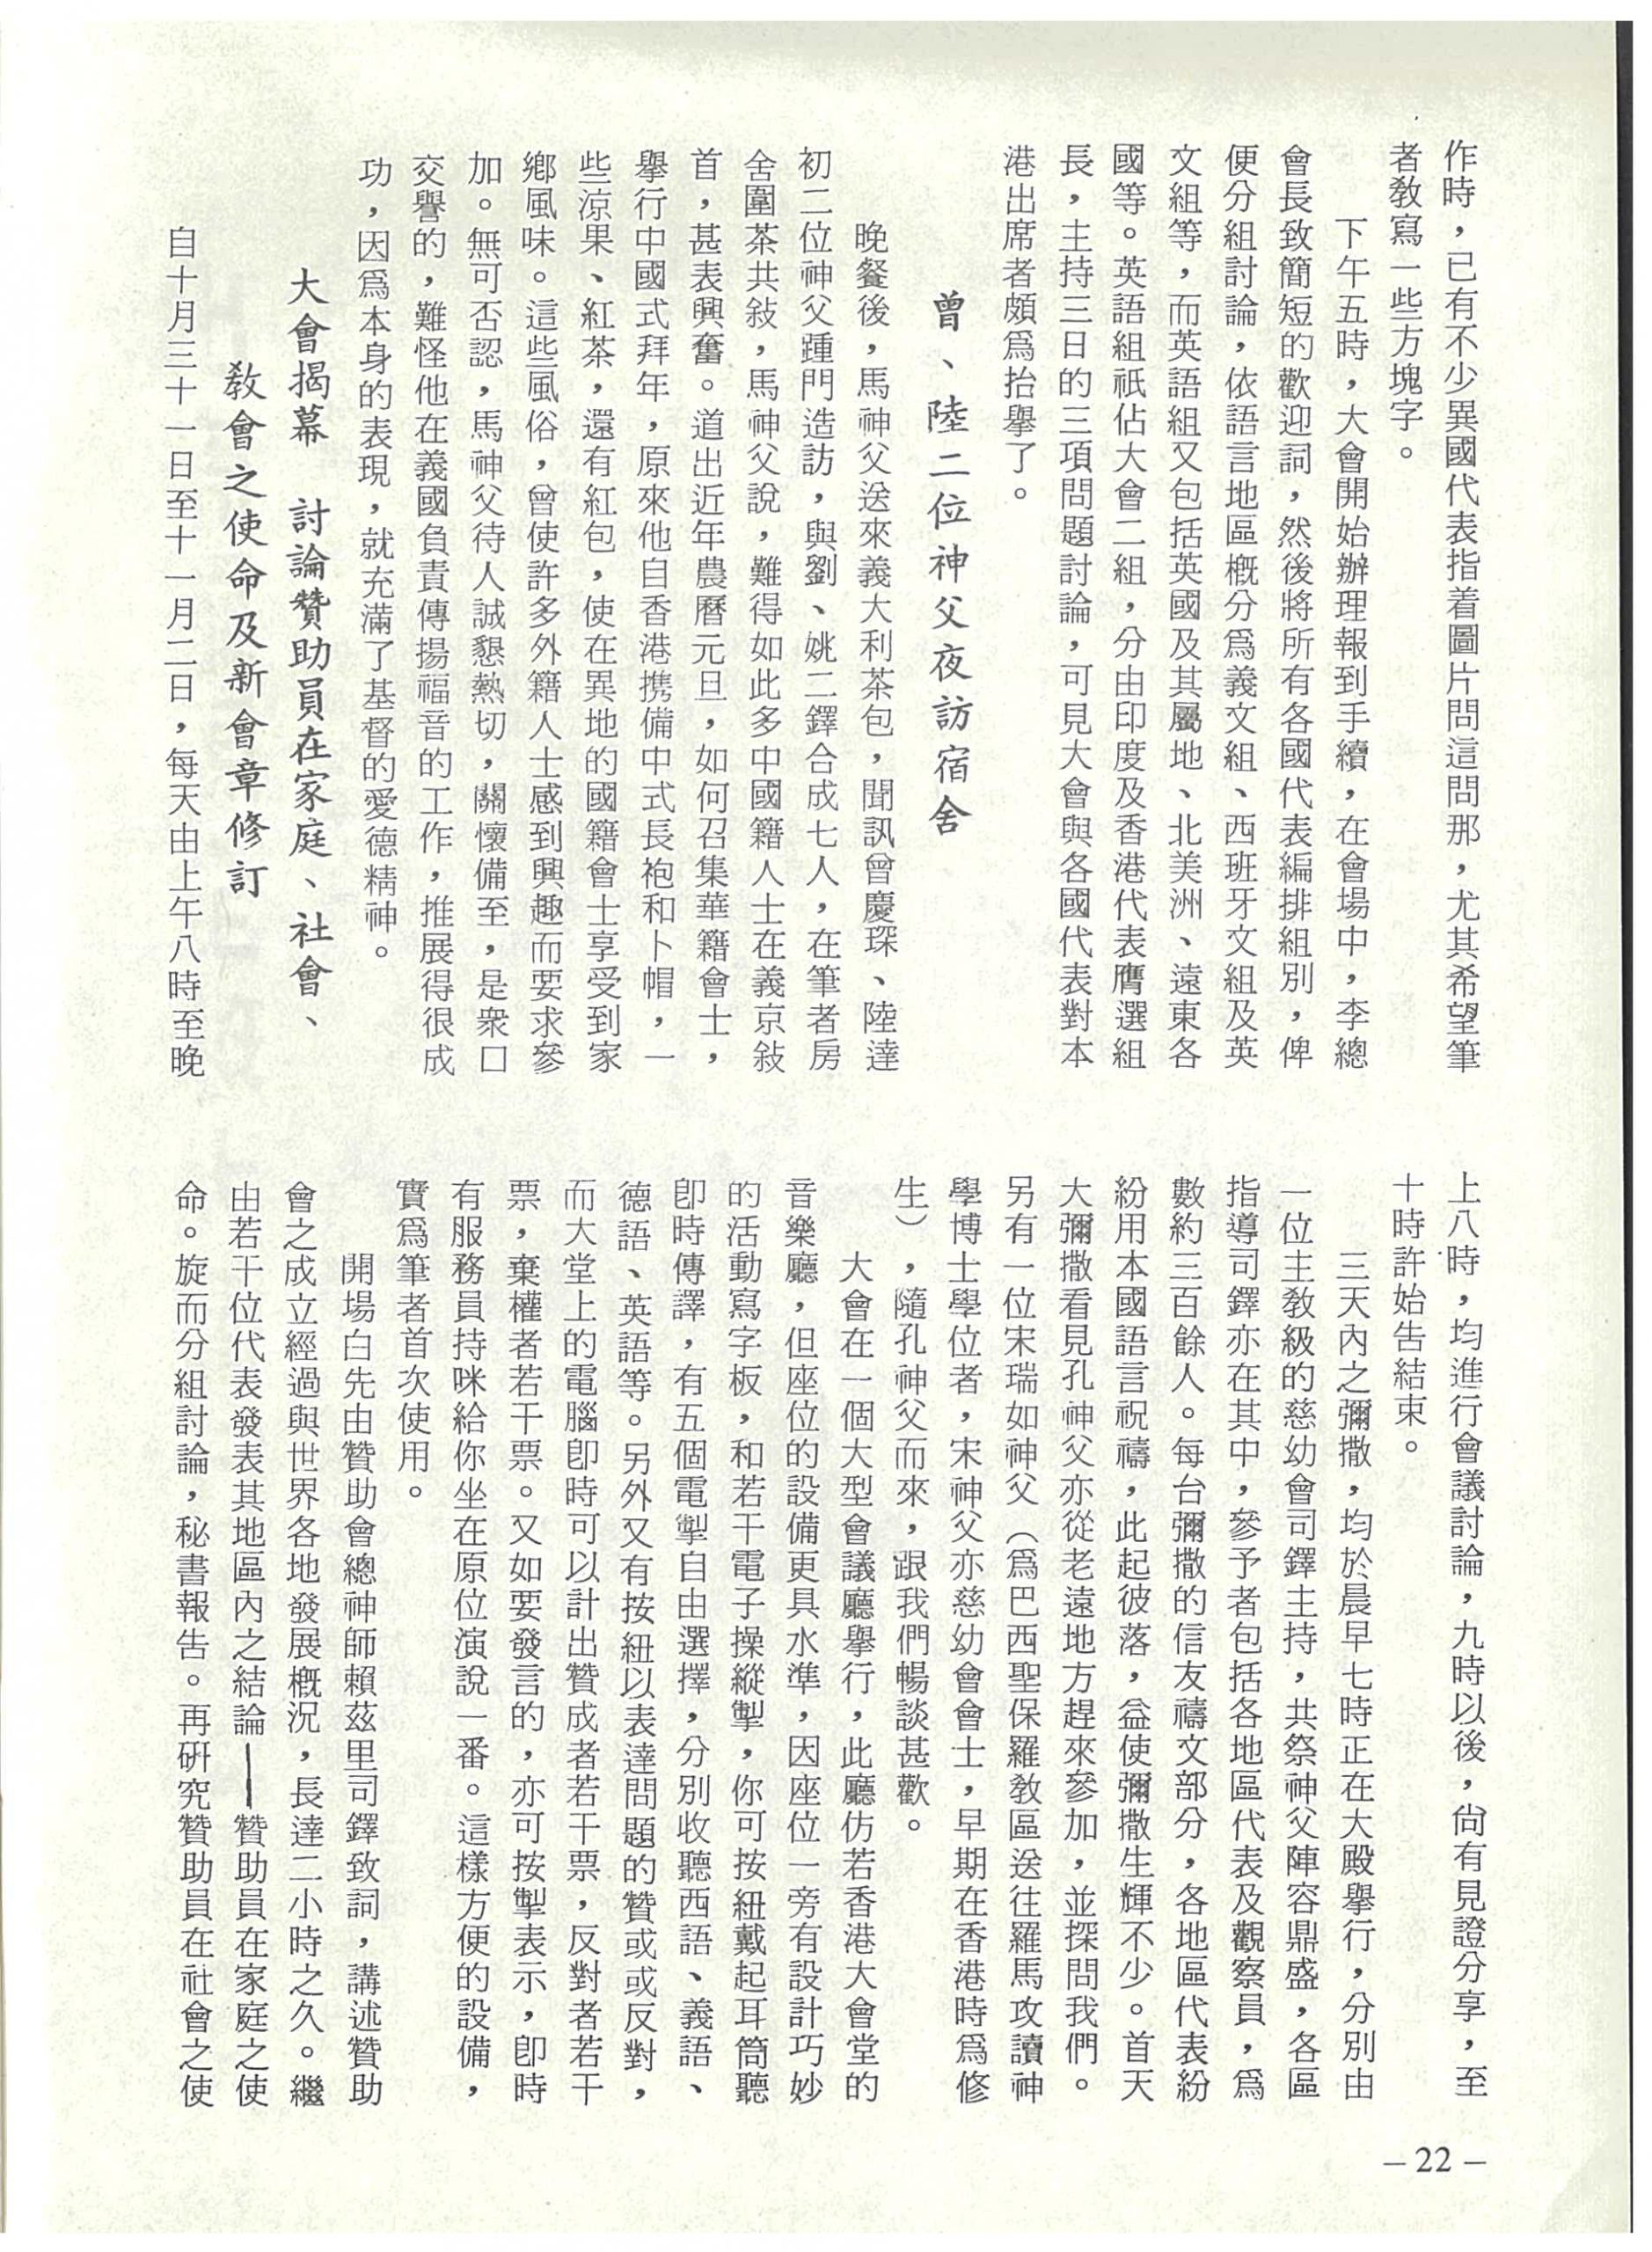 作時，已有不少異國代表指着圖片問這問那，尤其希望筆
者敎寫一些方塊字。
下午五時，大會開始辦理報到手續，在會場中，李總
會長致簡短的歡迎詞，然後將所有各國代表編排組別，俾
便分組討論，依語言地區概分爲義文組、西班牙文組及英
文組等，而英語組又包括英國及其屬地、北美洲、遠東各
國等。英語組祇佔大會二組，分由印度及香港代表膺選組
長，主持三日的三項問題討論，可見大會與各國代表對本
港出席者頗爲抬舉了。
曾、陸二位神父夜訪宿舍
晚餐後，馬神父送來義大利茶包，聞訊曾慶琛、陸達
初二位神父踵門造訪，與劉、姚二鐸合成七人，在筆者房
舍圍茶共敍，馬神父說，難得如此多中國籍人士在義京敍
首，甚表興奮。道出近年農曆元旦，如何召集華籍會士，
舉行中國式拜年，原來他自香港携備中式長袍和卜帽，一
些涼果、紅茶，還有紅包，使在異地的國籍會士享受到家
鄉風味。這些風俗，曾使許多外籍人士感到興趣而要求參
加。無可否認，馬神父待人誠懇熱切，關懷備至，是衆口
交譽的，難怪他在義國負責傳揚福音的工作，推展得很成
功，因爲本身的表現，就充滿了基督的愛德精神。
大會揭幕　討論贊助員在家庭、社會、
敎會之使命及新會章修訂
自十月三十一日至十一月二日，每天由上午八時至晚
上八時，均進行會議討論，九時以後，尙有見證分享，至
十時許始告結束。
三天內之彌撒，均於晨早七時正在大殿舉行，分別由
一位主敎級的慈幼會司鐸主持，共祭神父陣容鼎盛，各區
指導司鐸亦在其中，參予者包括各地區代表及觀察員，爲
數約三百餘人。每台彌撒的信友禱文部分，各地區代表紛
紛用本國語言祝禱，此起彼落，益使彌撒生輝不少。首天
大彌撒看見孔神父亦從老遠地方趕來參加，並探問我們。
另有一位宋瑞如神父（爲巴西聖保羅敎區送往羅馬攻讀神
學博士學位者，宋神父亦慈幼會會士，早期在香港時爲修
生），隨孔神父而來，跟我們暢談甚歡。
大會在一個大型會議廳舉行，此廳仿若香港大會堂的
音樂廳，但座位的設備更具水準，因座位一旁有設計巧妙
的活動寫字板，和若干電子操縱掣，你可按紐戴起耳筒聽
卽時傳譯，有五個電掣自由選擇，分別收聽西語、義語、
德語、英語等。另外又有按紐以表達問題的贊或或反對，
而大堂上的電腦卽時可以計出贊成者若干票，反對者若干
票，棄權者若干票。又如要發言的，亦可按掣表示，卽時
有服務員持咪給你坐在原位演說一番。這樣方便的設備，
實爲筆者首次使用。
開場白先由贊助會總神師賴茲里司鐸致詞，講述贊助
會之成立經過與世界各地發展概況，長達二小時之久。繼
由若干位代表發表其地區內之結論——贊助員在家庭之使
命。旋而分組討論，秘書報告。再硏究贊助員在社會之使
– 22 –